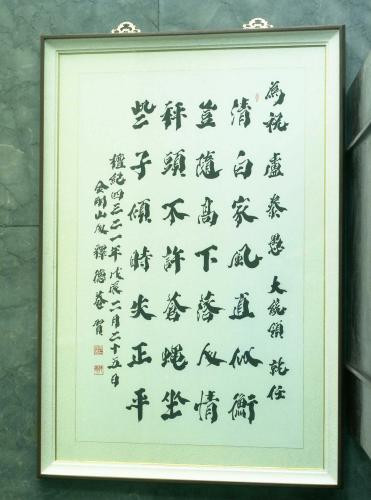 為祝 盧泰愚 大統領 就任
清白家風直似衡
豈隨高下落人情
秤頭不許蒼蠅坐
些子傾時失正平
檀紀四三二一年戊辰二月二十五日
金剛山人 釋 德菴 賀